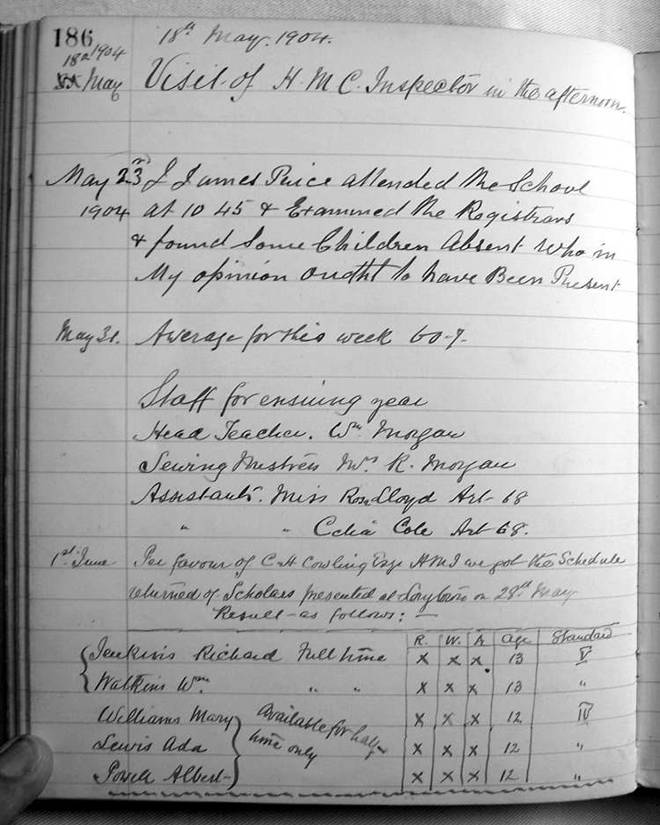 186
18th May. 1904.
18th 1904
May Visit of H. M. C. Inspector in the afternoon.
May 23rd I James Price attended the School
1904 at 10 45 & Examined the Registrars
& found Some Children Absent Who in
My opinion ought to have Been Present
May 31. Average for this week 60.7.
Staff for ensuing year
Head Teacher. Wm Morgan
Sewing Mistress Mrs R. Morgan
Assistants. Miss Rose Lloyd Art 68
" " Celia Cole Art 68.
1st June Per favour of C H Cowling Esqr HMI we got the Schedule
returned of Scholars presented at on 28th May
Result as follows:—
R. W. A. Age Standard
Jenkins Richard Full time x x x 13 V
Watkins Wm. " " x x x 13 "
Williams Mary Available for half x x x 12 IV
Lewis Ada time only x x x 12 "
Powell Albert x x x 12 "